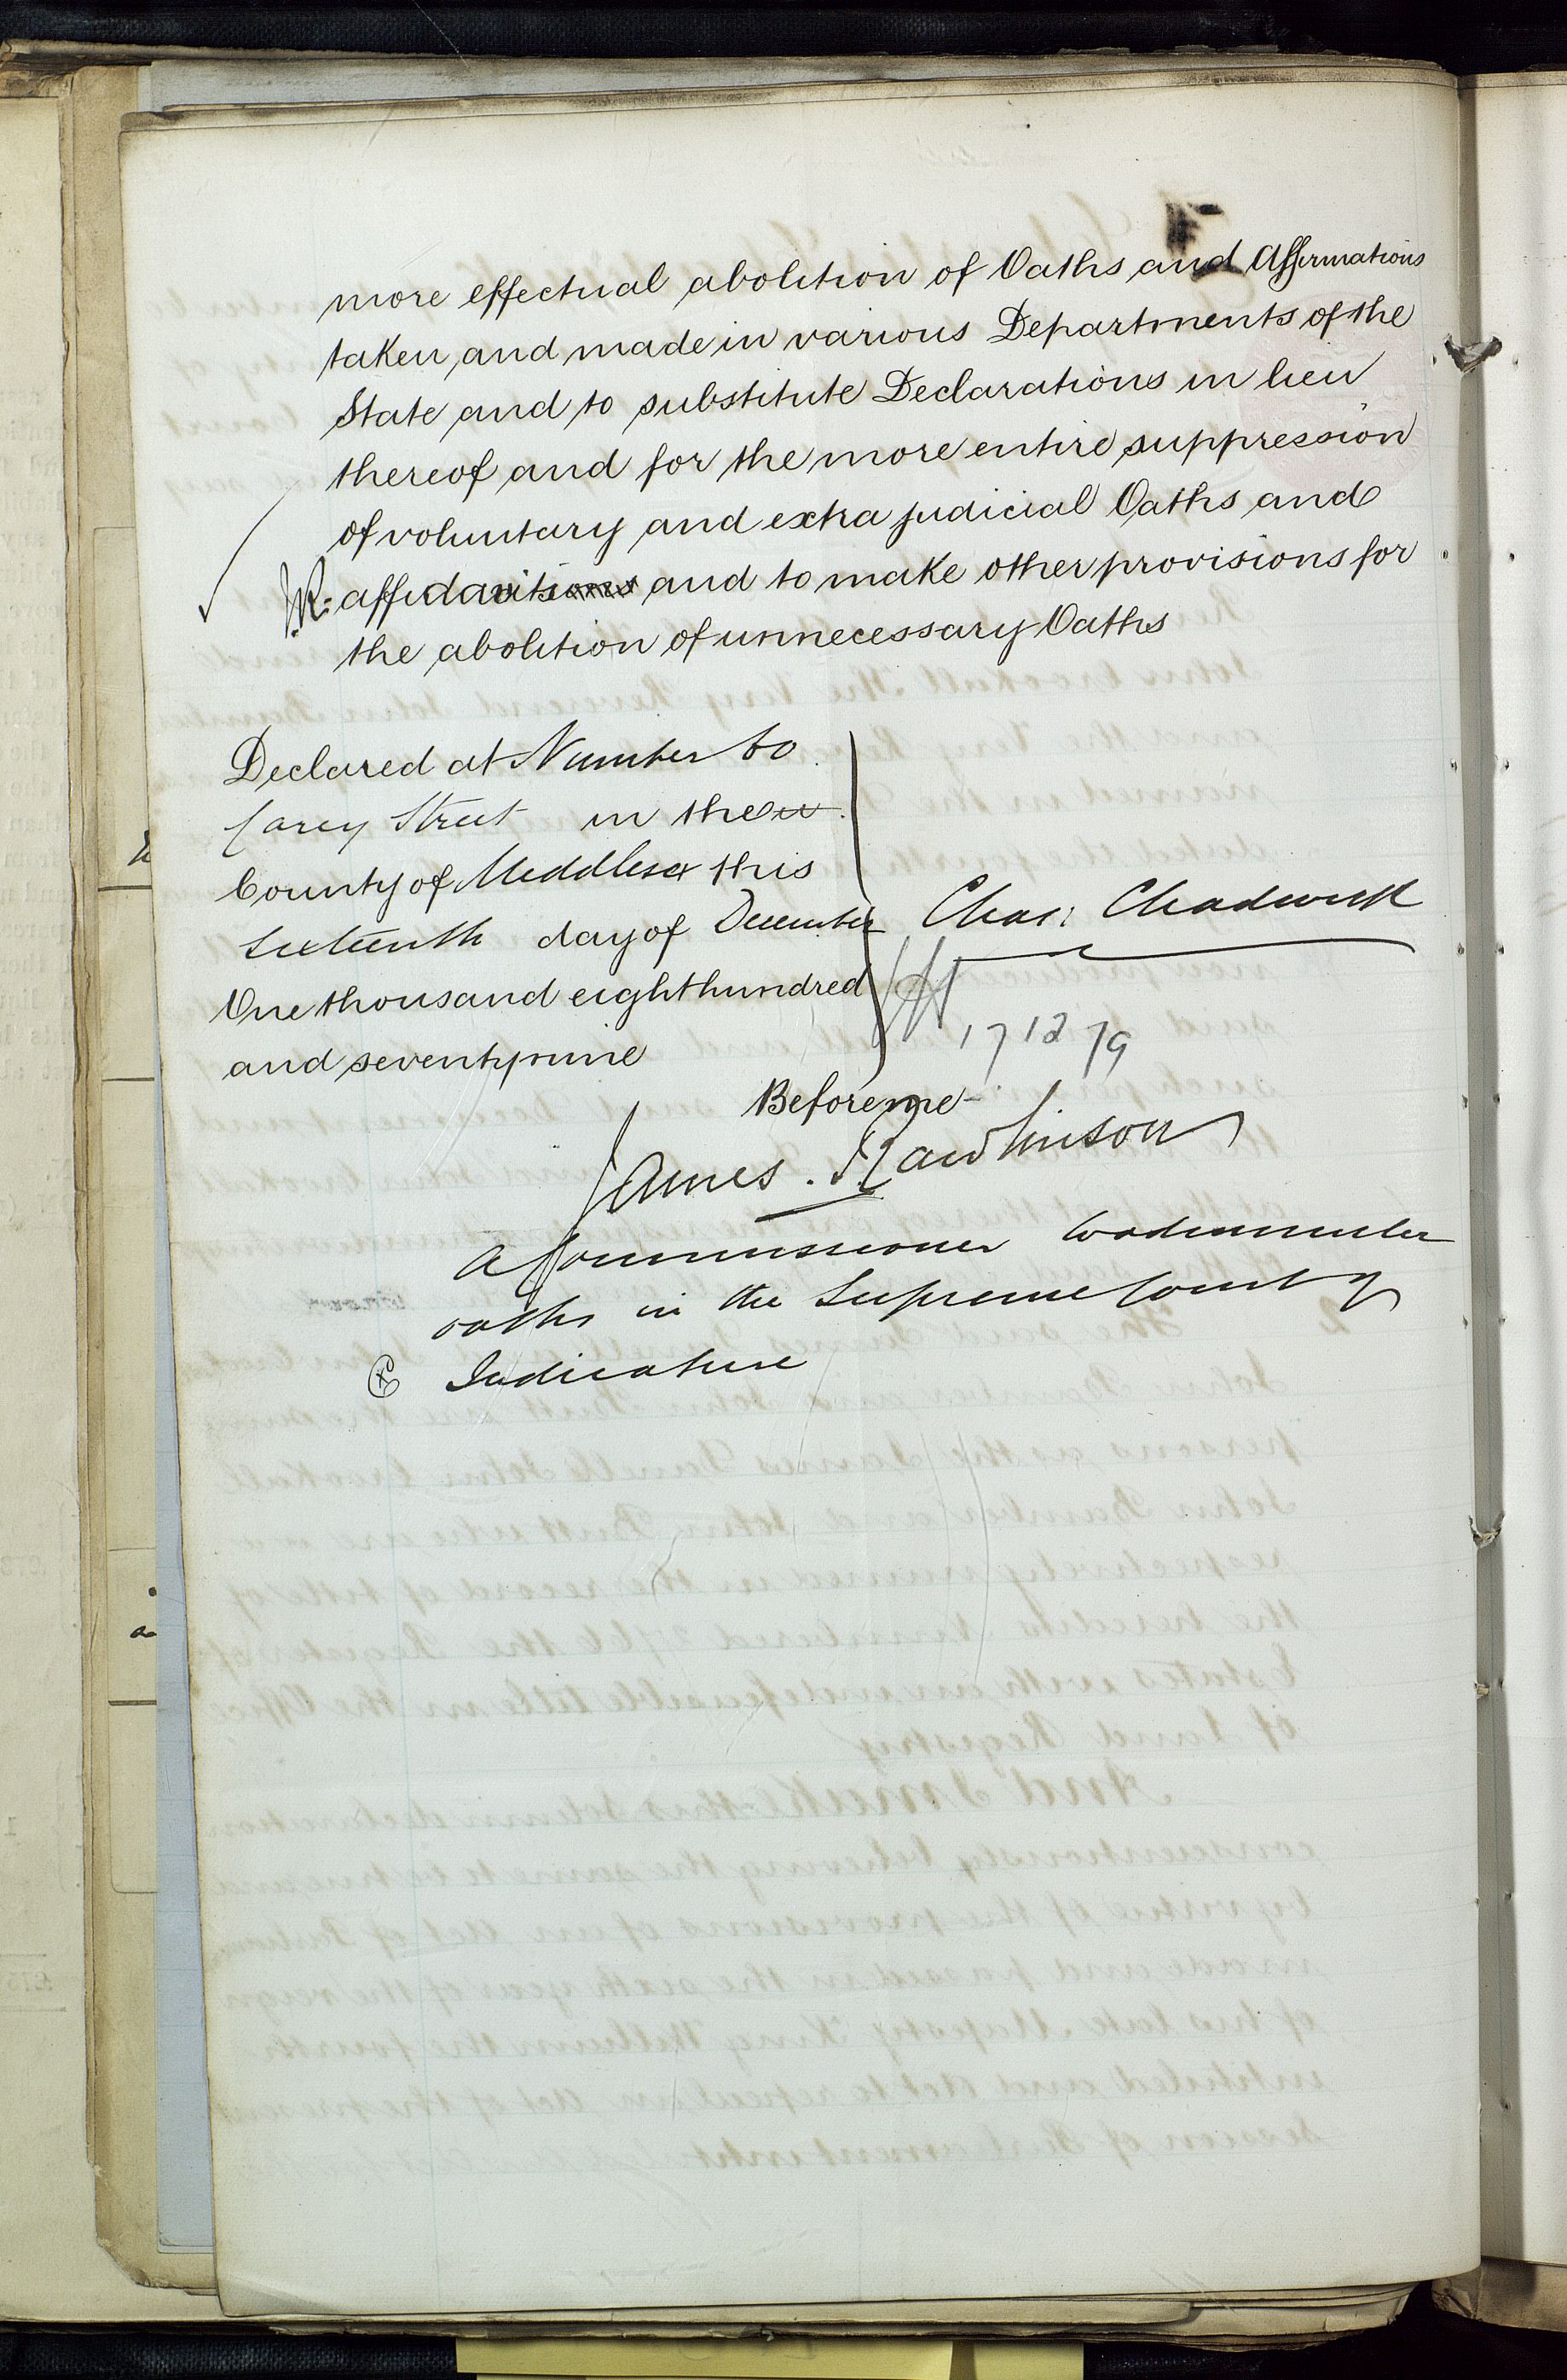 more effectual abolition of Oaths and Affirmations
taken and made in various Departments of the
State and to substitute Declarations in lieu
thereof and for the more entire suppression
of voluntary and extra judicial Oaths and
J.R. affidavits and to make other provisions for
the abolition of unnecessary Oaths
Declared at Number 60
Carey Street in the
County of Middlesex this
Sixteenth day of December
One thousand eight hundred
and seventy nine
Chas: Chadwick
17 12 79
Before me
James Rawlinson
A Commissioner to administer
oaths in the Supreme Court of
Judicature